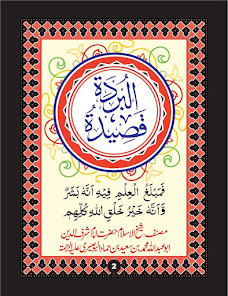 قصيدة
البردة
فَمَبْلَغُ الْعِلْمِ فِيْهِ اَنَّهٗ بَشَرٌ
وَاَنَّهٗ خَيْرُ خَلْقِ اللهِ كُلِّهِمِ
مصنف شیخ الاسلام حضرت امام شرف الدین
ابو عبداللہ محمد بن سعید بن حماد البوصیری علیہ الرحمۃ
2